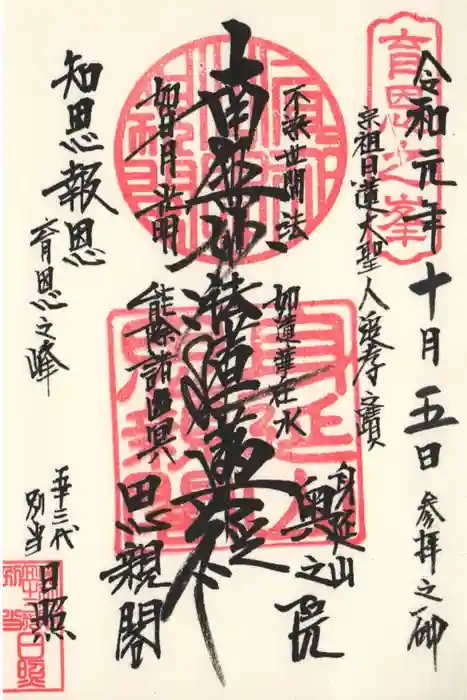 育恩之峯
令和元年十月五日
参拝之砌
宗祖日蓮大聖人御尊蹟
身延山
奥之院
不染世間法
如蓮華在水
南無妙法蓮華経
如日月光明
能除諸幽冥
思親閣
知恩報恩
育恩之峰
別当
日照